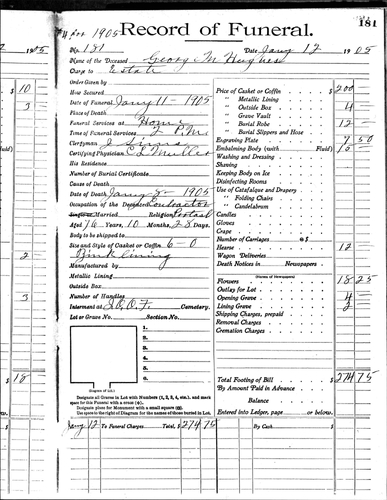 1905 Record of Funeral. 181
No. 181 Date Jany 12 1905
Name of the Deceased George M Hughes
Charge to Estate
Order Given by
How Secured
Date of Funeral Jany 11 - 1905
Place of Death
Funeral Services at Home
Time of Funeral Services 2 P.M.
Clergyman J Simms
Certifying Physician C L Muller
His Residence
Number of Burial Certificate
Cause of Death
Date of Death Jany 8 - 1905
Occupation of the Deceased Contractor
Single or Married Religion
Aged 76 Years, 10 Months, 28 Days,
Body to be shipped to
Size and Style of Casket or Coffin 6-0
Zinc lining
Manufactured by
Metallic Lining
Outside Box
Number of Handles
Interment at I.O.O.F. Cemetery.
Lot or Grave No. Section No.
1.
2.
3.
4.
5.
6.
(Diagram of Lot.)
Designate all Graves in Lot with Numbers (1, 2, 3, 4, etc.), and mark
space for this Funeral with a cross (+).
Designate place for Monument with a small square (□).
Use the space to the right of Diagram for the names of those buried in Lot.
Price of Casket or Coffin $ 200
" Metallic Lining
" Outside Box 4
" Grave Vault
" Burial Robe 12
" Burial Slippers and Hose
Engraving Plate 7 50
Embalming Body (with Fluid) 15
Washing and Dressing
Shaving
Keeping Body on Ice
Disinfecting Rooms
Use of Catafalque and Drapery
" Folding Chairs
" Candelabrum
Candles
Gloves
Crape
Number of Carriages @ $
Hearse 12
Wagon Deliveries
Death Notices in Newspapers
(Names of Newspapers)
Flowers 18 25
Outlay for Lot
Opening Grave 4
Lining Grave 2
Shipping Charges, prepaid
Removal Charges
Cremation Charges
Total Footing of Bill $ 274 75
By Amount Paid in Advance
Balance
Entered into Ledger, page or below.
Jany 12 To Funeral Charges Total, $ 274 75 By Cash $
1905
$ 10
3
Fluid)
2
3
$ 18
$